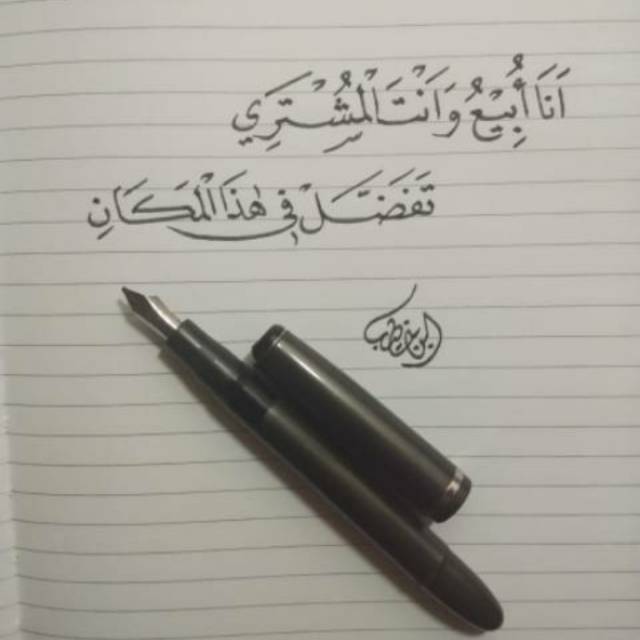 اَنَا أُبِيْعُ وَ اَنْتَ الْمُشْتَرِي
تَفَضَّلْ فِي هٰذَا الْمَكَانِ